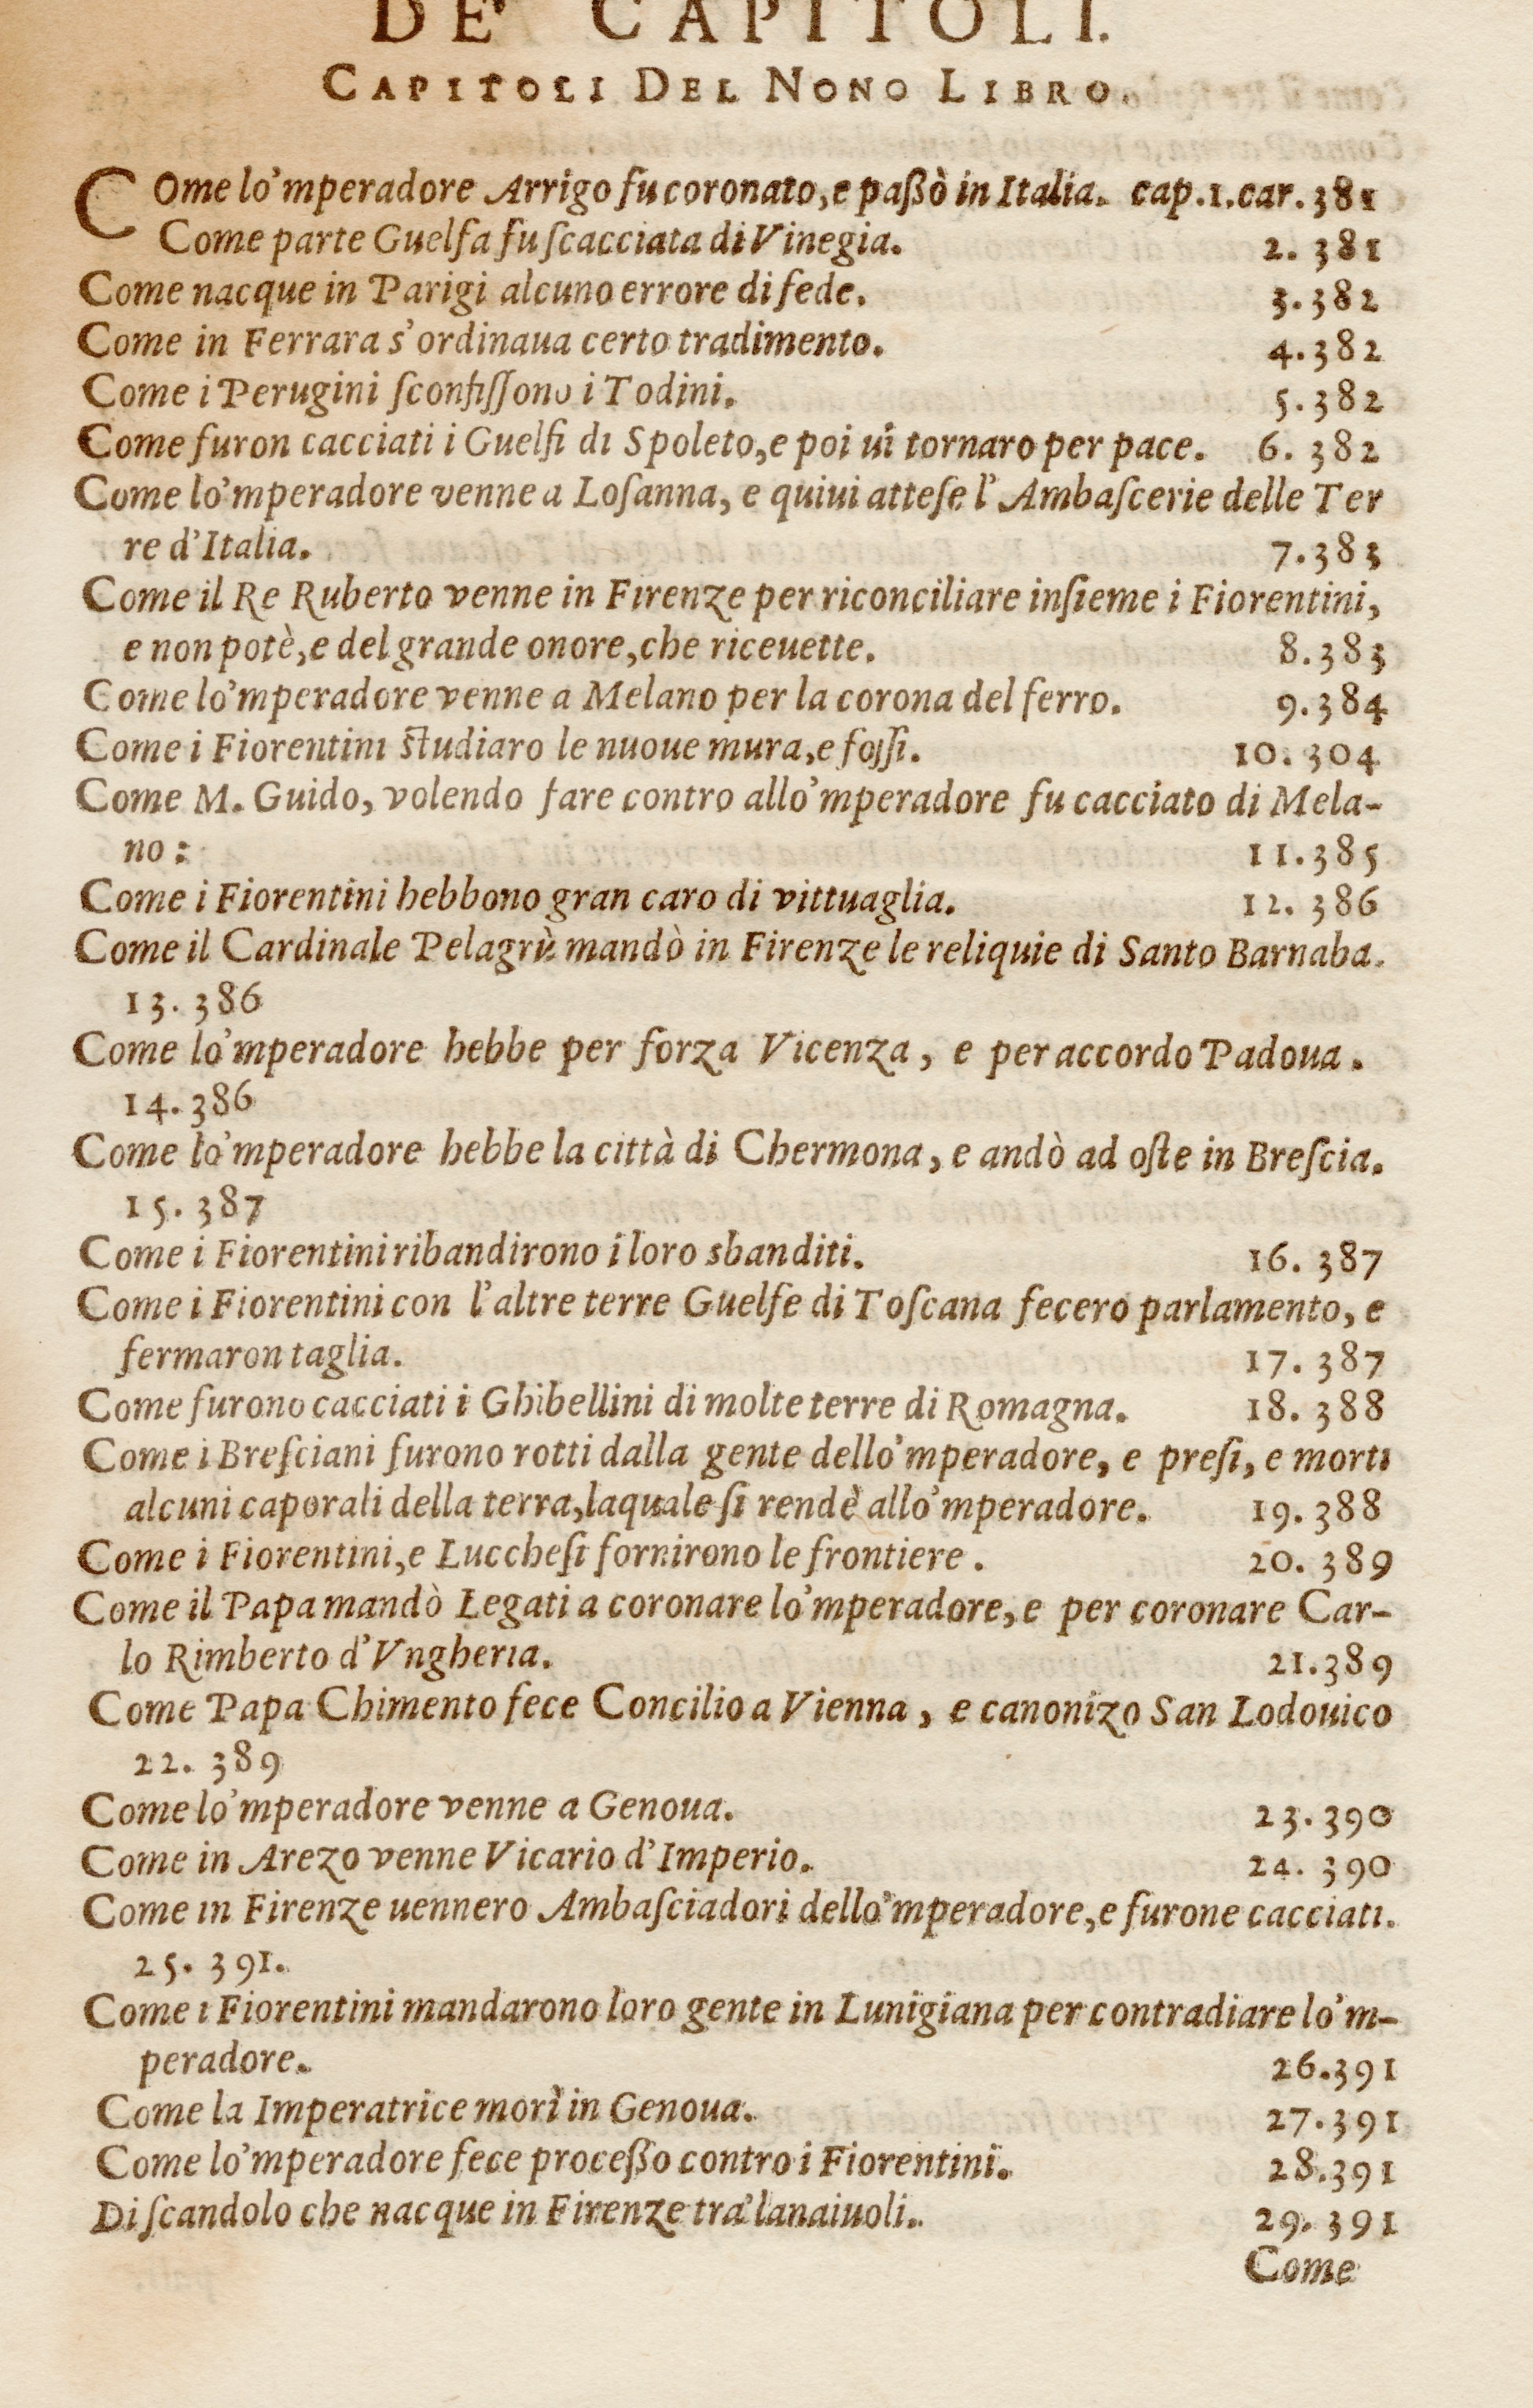 DE' CAPITOLI.
CAPITOLI DEL NONO LIBRO.
COme lo'mperadore Arrigo fu coronato, e paßò in Italia. cap.1.car.381
Come parte Guelfa fu ſcacciata di Vinegia. 2. 381
Come nacque in Parigi alcuno errore di fede. 3.382
Come in Ferrara s'ordinaua certo tradimento. 4.382
Come i Perugini ſconfiſſono i Todini. 5.382
Come furon cacciati i Guelfi di Spoleto, e poi ui tornaro per pace. 6. 382
Come lo'mperadore venne a Loſanna, e quiui atteſe l'Ambaſcerie delle Ter
re d'Italia. 7.383
Come il Re Ruberto venne in Firenze per riconciliare inſieme i Fiorentini,
e non potè, e del grande onore, che riceuette. 8.383
Come lo'mperadore venne a Melano per la corona del ferro. 9.384
Come i Fiorentini ſtudiaro le nuoue mura, e foſſi. 10. 304
Come M. Guido, volendo fare contro allo'mperadore fu cacciato di Mela-
no: 11.385
Come i Fiorentini hebbono gran caro di vittuaglia. 12. 386
Come il Cardinale Pelagrù mandò in Firenze le reliquie di Santo Barnaba.
13. 386
Come lo'mperadore hebbe per forza Vicenza, e per accordo Padoua.
14. 386
Come lo'mperadore hebbe la città di Chermona, e andò ad oſte in Breſcia.
15. 387
Come i Fiorentini ribandirono i loro sbanditi. 16. 387
Come i Fiorentini con l'altre terre Guelfe di Toſcana fecero parlamento, e
fermaron taglia. 17. 387
Come furono cacciati i Ghibellini di molte terre di Romagna. 18. 388
Come i Breſciani furono rotti dalla gente dello'mperadore, e preſi, e morti
alcuni caporali della terra, laquale ſi rendè allo'mperadore. 19. 388
Come i Fiorentini, e Luccheſi fornirono le frontiere. 20. 389
Come il Papa mandò Legati a coronare lo'mperadore, e per coronare Car-
lo Rimberto d'Vngheria. 21.389
Come Papa Chimento fece Concilio a Vienna, e canonizo San Lodouico
22. 389
Come lo'mperadore venne a Genoua. 23.390
Come in Arezo venne Vicario d'Imperio. 24. 390
Come in Firenze uennero Ambaſciadori dello'mperadore, e furone cacciati.
25. 391.
Come i Fiorentini mandarono loro gente in Lunigiana per contradiare lo'm-
peradore. 26.391
Come la Imperatrice morì in Genoua. 27.391
Come lo'mperadore fece proceßo contro i Fiorentini. 28.391
Di ſcandolo che nacque in Firenze tra' lanaiuoli. 29. 391
Come